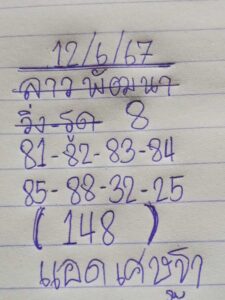 12/6/67
ลาวพัฒนา
วิ่ง-รูด 8
81-82-83-84
85-88-32-25
(148)
แอดเศษฐา